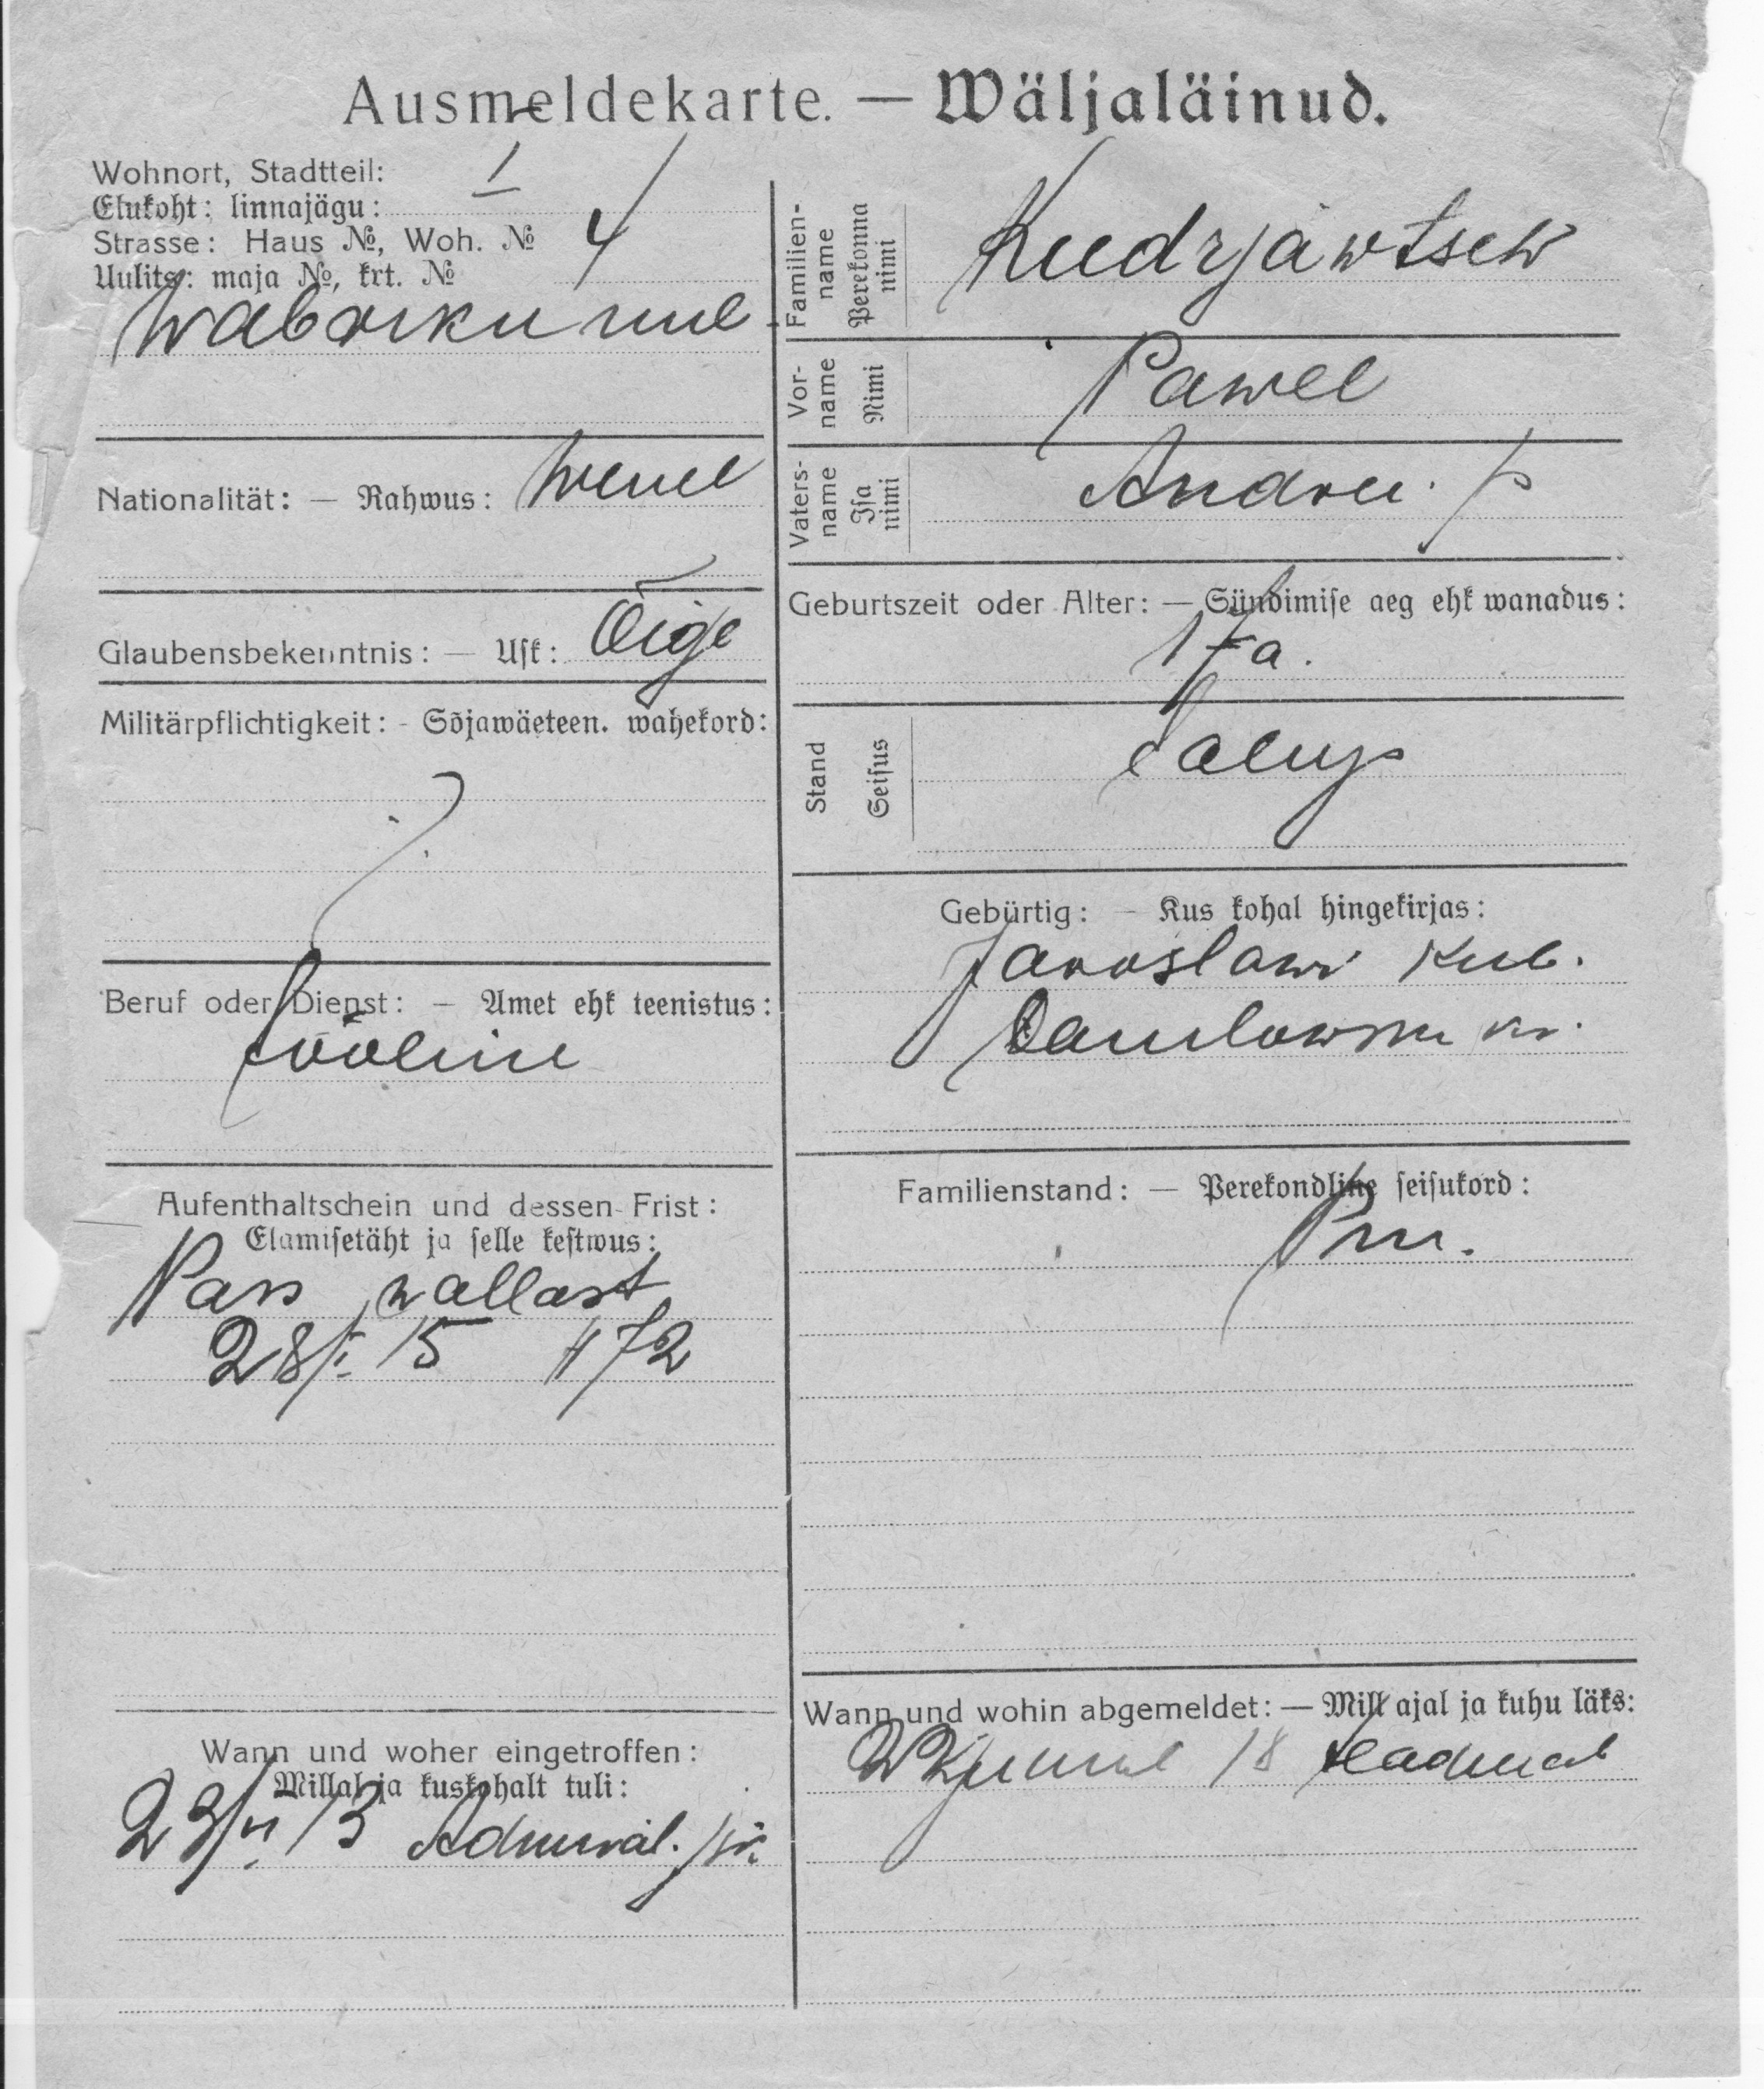 Ausmeldekarte. — Wäljaläinud.
Wohnort, Stadtteil: I
Elukoht: linnajägu:
Strasse: Haus №, Woh. № 4
Uulits: maja №, krt. №
Wabriku uul
Nationalität: — Rahwus: Wene
Glaubensbekenntnis: — Usk: Õige
Militärpflichtigkeit: - Sõjawäeteen. wahekord:
Beruf oder Dienst: — Amet ehk teenistus:
tööline
Aufenthaltschein und dessen Frist:
Elamisetäht ja selle kestwus:
Pass wallast
28/ 15 # 72
Wann und woher eingetroffen:
Millal ja kuskohalt tuli:
23/VI 13 Admiral.
Familien-name Perekonna nimi Kudrjawtsew
Vor-name Nimi Pawel
Vaters-name Isa nimi Andrei p
Geburtszeit oder Alter: — Sündimise aeg ehk wanadus:
17 a.
Stand Seisus talup
Gebürtig: — Kus kohal hingekirjas:
Jaroslawi kub.
Danilowski kr.
Familienstand: — Perekondline seisukord:
Pm.
Wann und wohin abgemeldet: — Mill ajal ja kuhu läks:
18 teadmat